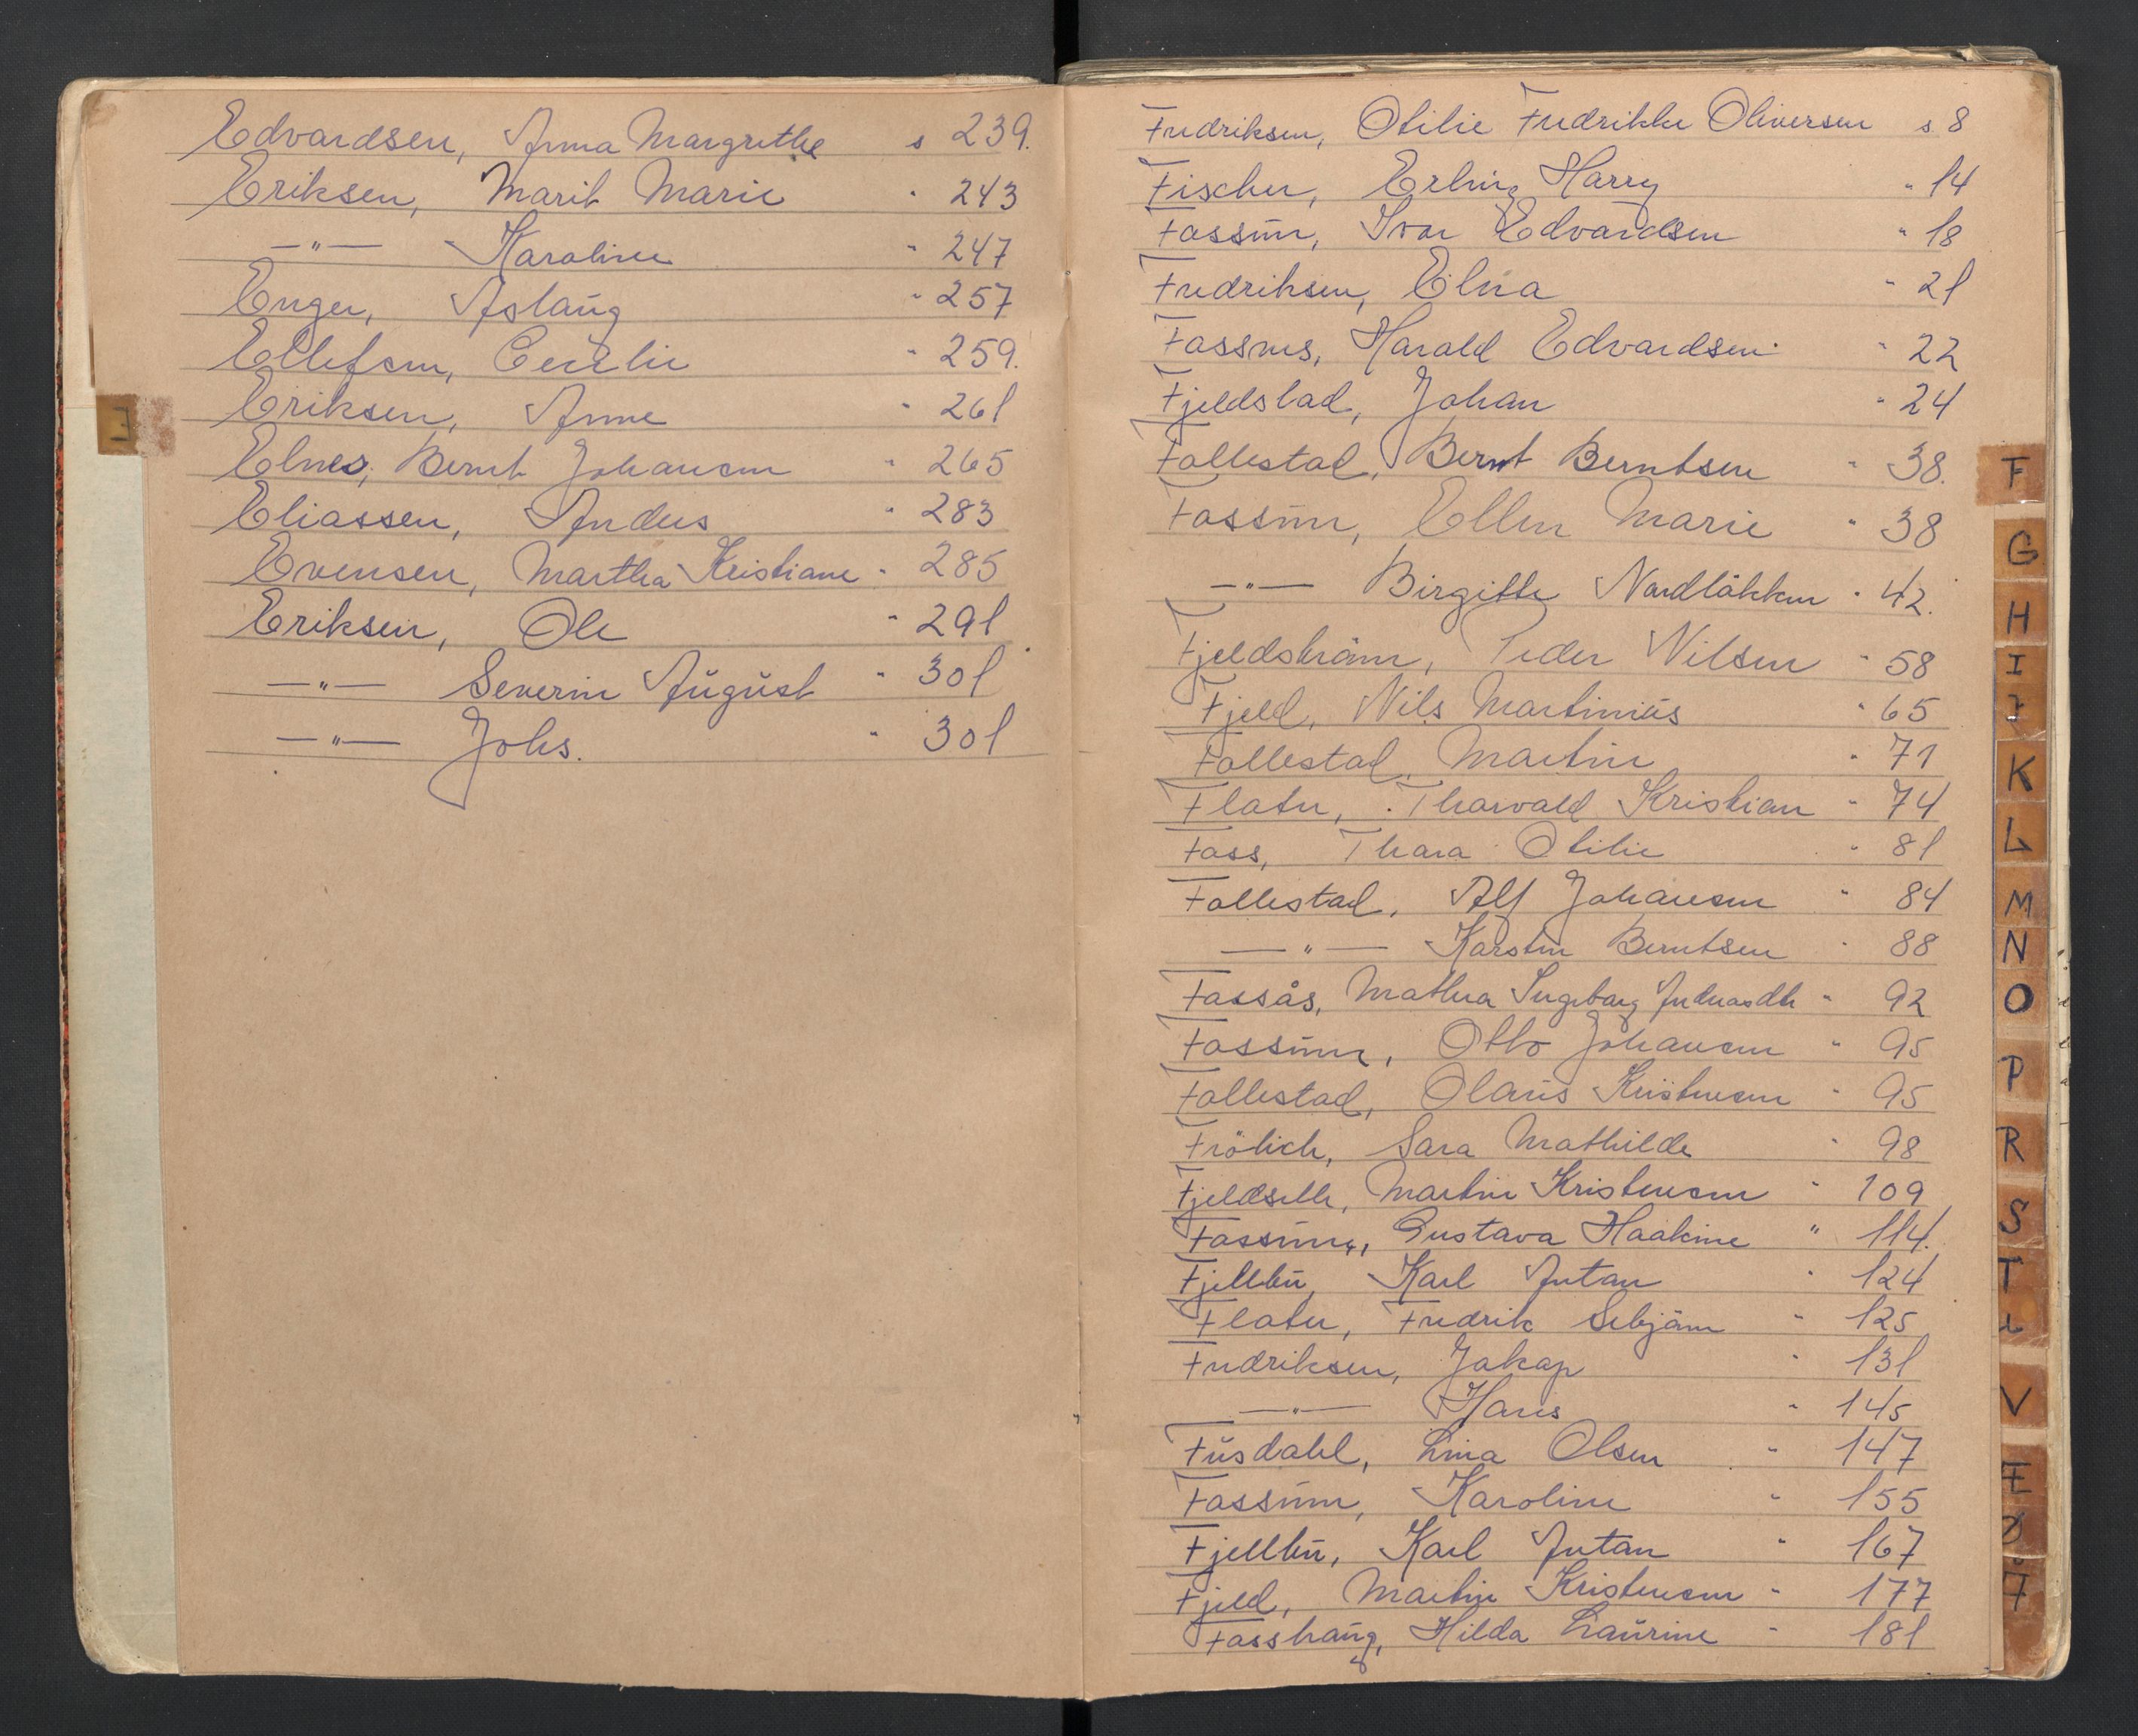 Edvardsen, Anna Margrethe s 239.
Eriksen, Marit Marie " 243
—"— Karoline " 247
Enger, Aslaug " 257
Ellefsen, Cecilie " 259.
Eriksen, Anne " 261
Elnes, Bernt Johansen " 265
Eliassen, Anders " 283
Evensen, Martha Kristiane " 285
Eriksen, Ole " 291
—"— Severin August " 301
—"— Johs. " 301
Fredriksen, Otilie Fredrikke Oliversen s. 8
Fischer, Erling Harry " 14
Fossum, Ivar Edvardsen " 18
Fredriksen, Elna " 21
Fossnes, Harald Edvardsen " 22
Fjeldstad, Johan " 24
Follestad, Bernt Berntsen " 38.
Fossum, Ellen Marie " 38
—"— Birgitte Nordløkken " 42.
Fjeldstrøm, Peder Nilsen " 58
Fjeld, Nils Martinius " 65
Follestad, Martin " 71
Flaten, Thorvald Kristian " 74
Foss, Thora Otilie " 81
Follestad, Alf Johansen " 84
—"— Karsten Berntsen " 88
Fossås, Mathea Ingeborg Andreasdtr " 92
Fossum, Otto Johansen " 95
Follestad, Olaus Kristensen " 95
Frölich, Sara Mathilde " 98
Fjeldseth, Martin Kristensen " 109
Fossum, Gustava Haakine " 114.
Fjellbu, Karl Anton " 124
Flaten, Fredrik Sebjørn " 125
Fredriksen, Jakop " 131
—"— Hans " 145
Fusdahl, Lina Olsen " 147
Fossum, Karoline " 155
Fjellbu, Karl Anton " 167
Fjeld, Martin Kristensen " 177
Fosshaug, Hilda Laurine " 181
E
F
G
H
I
J
K
L
M
N
O
P
R
S
T
U
V
Æ
Ø
Å